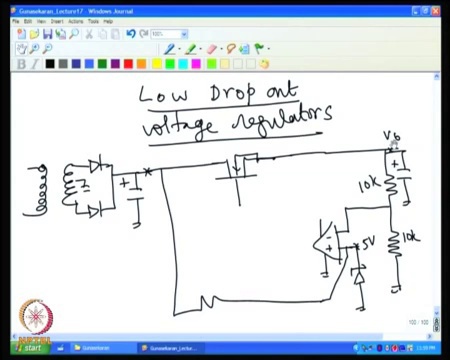 Gunasekaran_Lecture17 - Windows Journal
File Edit View Insert Actions Tools Help
100%
B I
Low Drop out
voltage regulators
Vo
+
+
10k
-
+
5V
10k
100 / 100
NPTEL
start
Gunasekaran
Gunasekaran_Lectu...